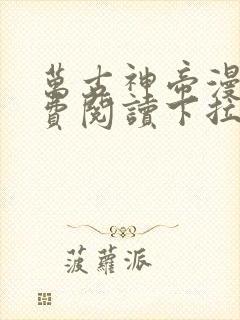 萬古神帝漫
費閱讀下拉
菠蘿派